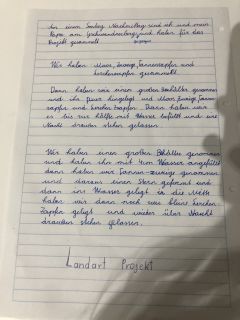 An einem Sonntag Nachmittag sind ich und mein
Papa am gegangen und haben für das
Projekt gesammelt.
Wir haben Moos, Zweige, Tannenzapfen und
Lerchenzapfen gesammelt.
Dann haben wir einen großen Behälter genommen
und ihn hingelegt und Moos, Zweige, Tannen-
zapfen und Lerchen zapfen. Dann haben wir
es bis zur hälfte mit Wasser befüllt und eine
Nacht draußen stehen gelassen.
Wir haben einen großen Behälter genommen
und haben ihn mit Wasser angefüllt
dann haben wir Tannen-zweige genommen
und daraus einen Stern geformt und
dann ins Wasser gelegt in die Mitte
haben wir dann noch kleine Lerchen
Zapfen gelegt und wieder über Nacht
draußen stehen gelassen.
Landart Projekt